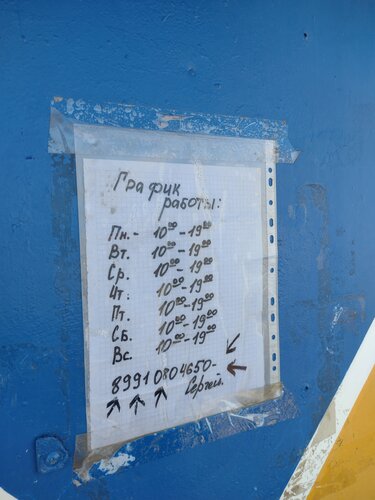 График
работы:
Пн.- 10⁰⁰-19⁰⁰
Вт. 10⁰⁰-19⁰⁰
Ср. 10⁰⁰-19⁰⁰
Чт: 10⁰⁰-19⁰⁰
Пт. 10⁰⁰-19⁰⁰
Сб. 10⁰⁰-19⁰⁰
Вс. 10⁰⁰-19⁰⁰
89910804650-
Сергей.